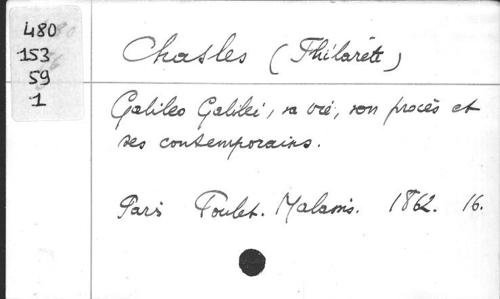 480
153
59
1
Chasles (Philarète)
Galileo Galilei, sa vie, son procès et
ses contemporains.
Paris Poulet. Malassis. 1862. 16.